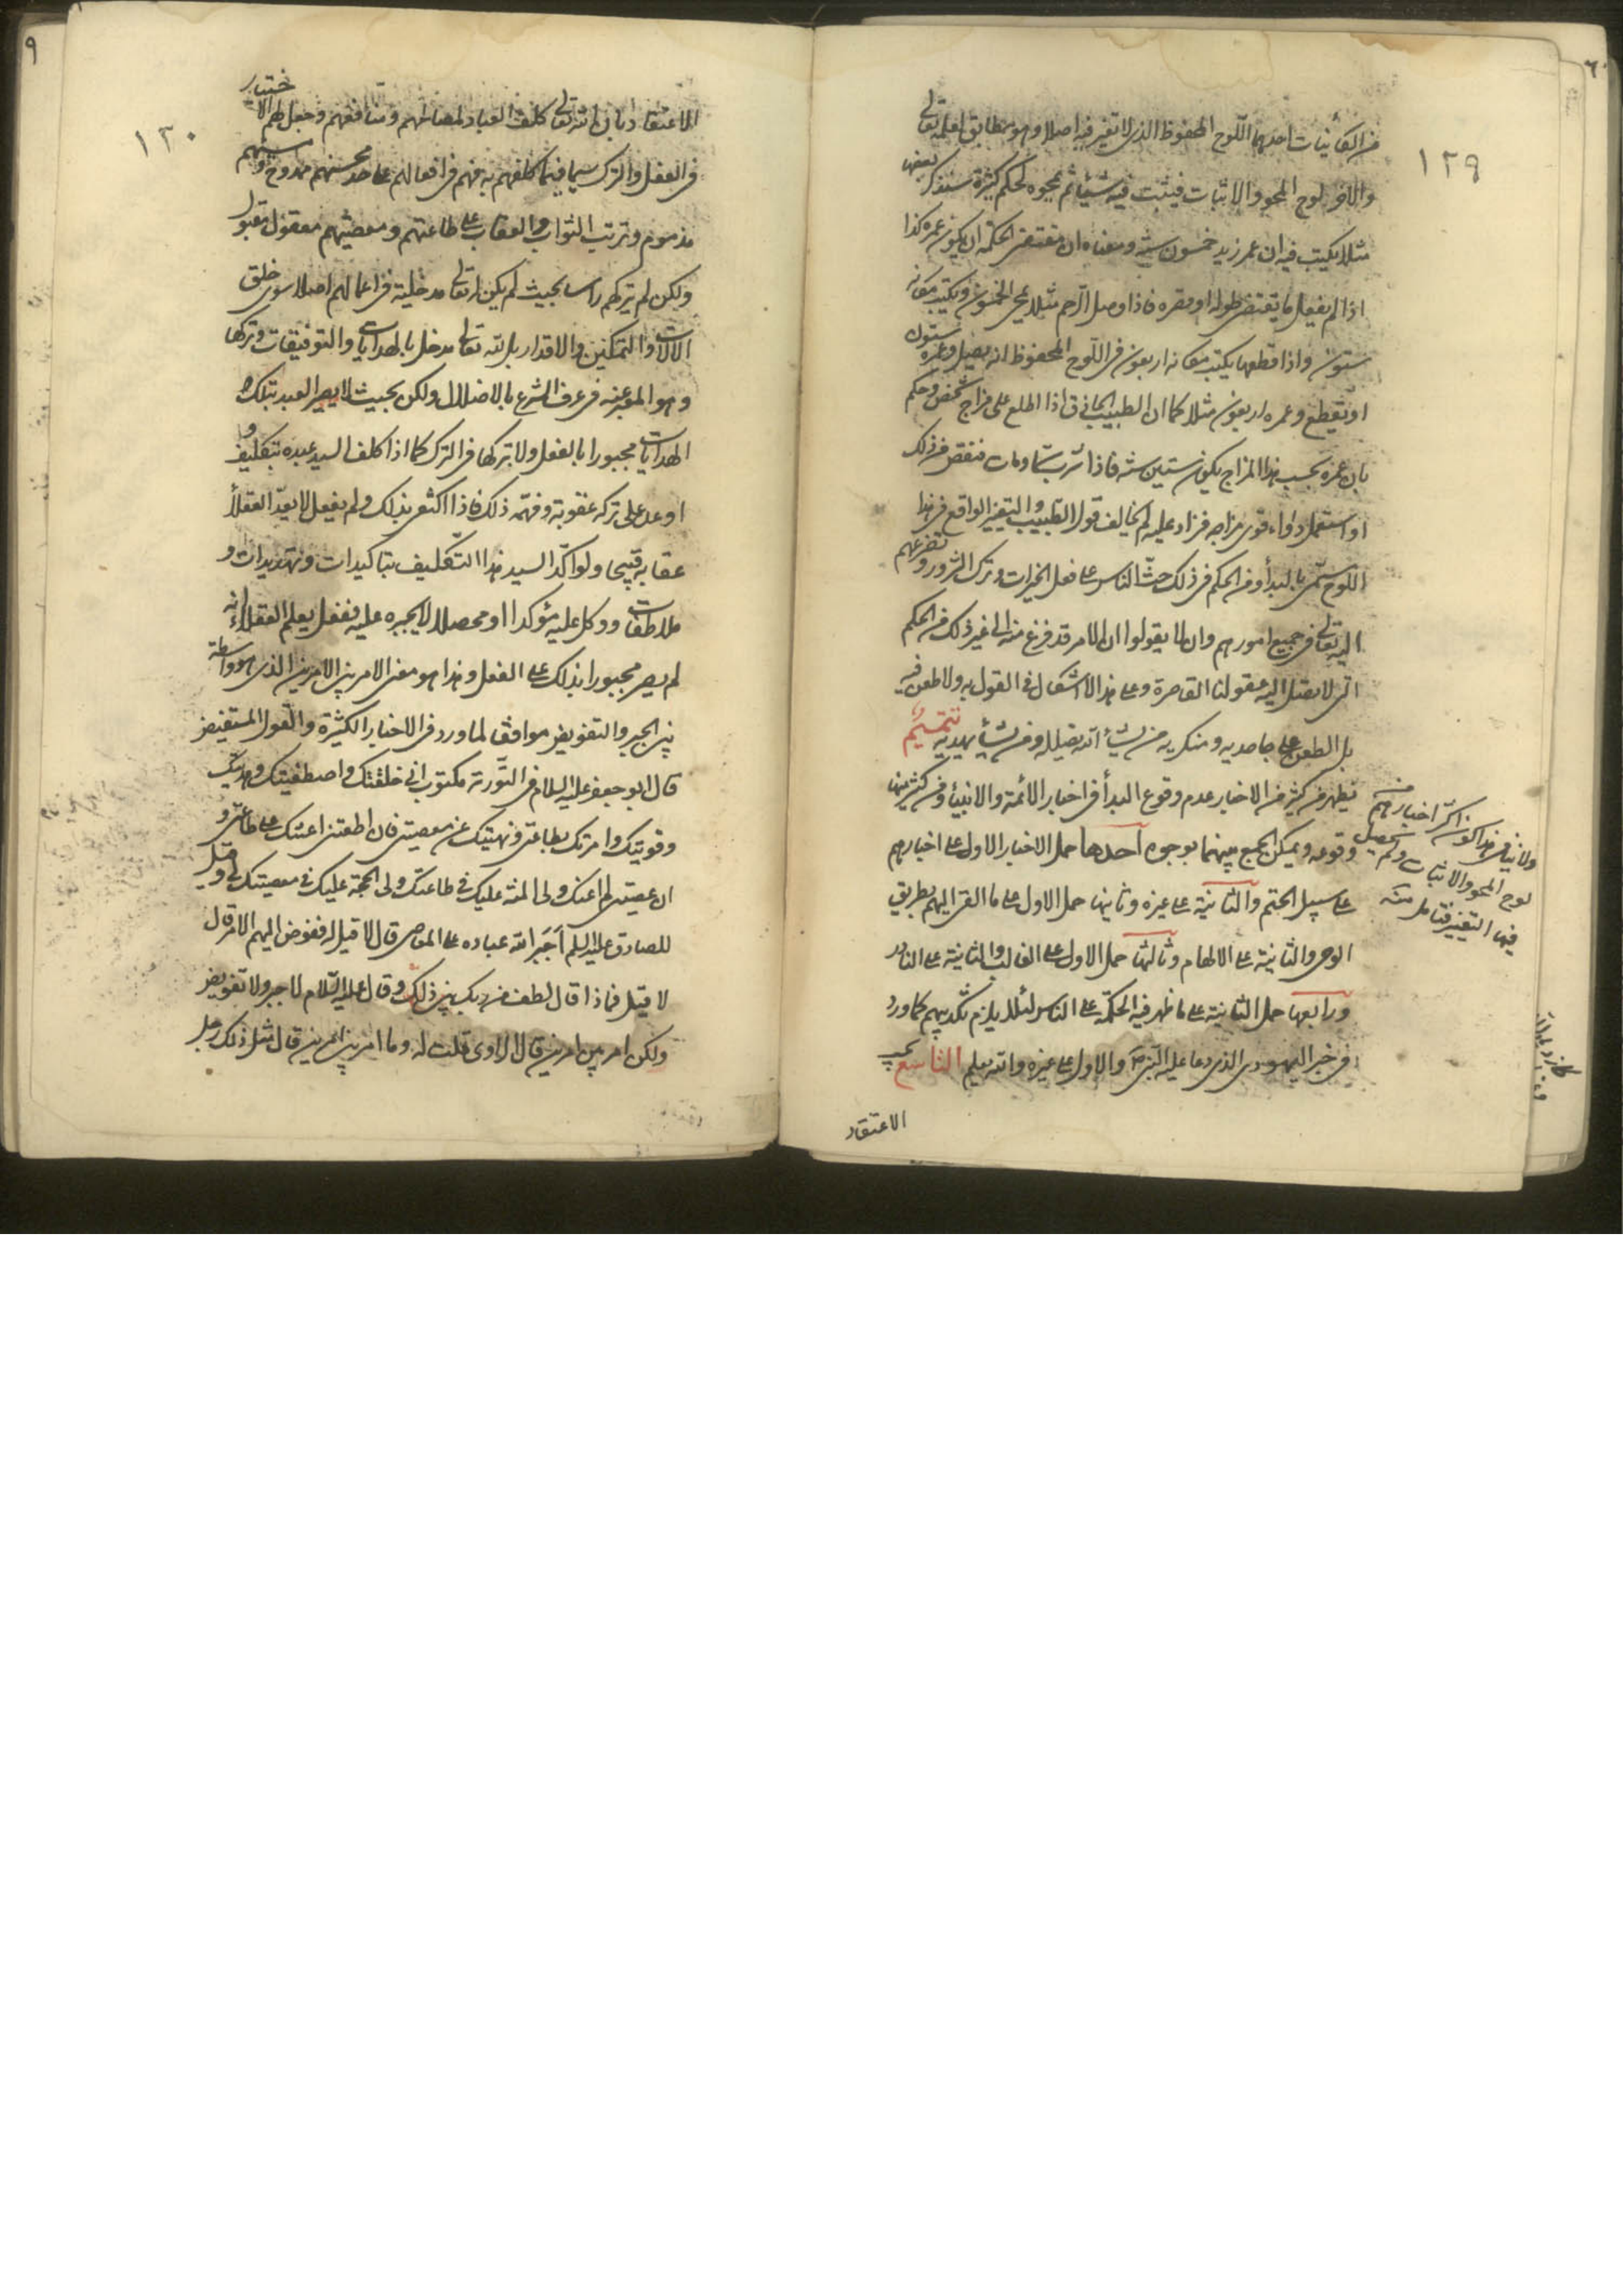 ١٢٩
من الكائنات احدهما اللوح المحفوظ الذى لا تغير فيه اصلا وهو مطابق لعلمه تعالى
والآخر لوح المحو والاثبات فيثبت فيه شيئا ثم يمحوه لحكم كثيرة سنذكر بعضها
مثلا يكتب فيه ان عمر زيد خمسون سنة ومعناه ان مقتضى الحكمة ان يكون عمره كذا
اذا لم يفعل ما يقتضى طوله او قصره فاذا وصل الرحم مثلا يمحى الخمسون ويكتب مكانه
ستون واذا قطعها يكتب مكانه اربعون وفى اللوح المحفوظ انه يصل وعمره ستون
او يقطع وعمره اربعون مثلا كما ان الطبيب الحاذق اذا اطلع على مزاج شخص وحكم
بان عمره بحسب هذا المزاج يكون ستين سنة فاذا شرب سما ومات فنقص من ذلك
او استعمل دواء قوى مزاجه فزاد عليه لم يخالف قول الطبيب والتغير الواقع فى هذا
اللوح يسمى بالبدأ ومن الحكم فى ذلك حث الناس على فعل الخيرات وترك الشرور وتضرعهم
اليه تعالى فى جميع امورهم وان لا يقولوا ان الامر قد فرغ منه الى غير ذلك من الحكم
التى لا يصل اليه عقولنا القاصرة وعلى هذا لا اشكال فى القول به ولا طعن فيه
بل الطعن على جاحديه ومنكريه من يشأ الله يضلله ومن يشأ يهديه تتميم
يظهر من كثير من الاخبار عدم وقوع البدأ فى اخبار الائمة والانبياء ومن كثير منها
وقوعه ويمكن الجمع بينهما بوجوه احدها حمل الاخبار الاول على اخبارهم
على سبيل الحتم والثانية على غيره وثانيها حمل الاول على ما القى اليهم بطريق
الوحى والثانية على الالهام وثالثها حمل الاول على الغالب والثانية على النادر
ورابعها حمل الثانية على ما ظهر فيه الحكمة على الناس لئلا يلزم تكذيبهم كما ورد
فى خبر اليهودى الذى دعا عليه النبى ص والاول على غيره والله يعلم التاسع يجب
الاعتقاد
ولا ينافى هذا كون اكثر اخبارهم من
لوح المحو والاثبات ولم يحصل
فيها التغير فتامل منه
١٣٠
الاعتقاد بان الله تعالى كلف العباد لمصالحهم ومنافعهم وجعل لهم الاختيار
فى الفعل والترك سيما فيما كلفهم به فهم فى افعالهم على حد محسنهم ممدوح ومسيئهم
مذموم وترتب الثواب والعقاب على طاعتهم ومعصيتهم معقول مقبول
ولكن لم يتركهم راسا بحيث لم يكن له تعالى مدخلية فى اعمالهم اصلا سوى خلق
الآلات والتمكين والاقدار بل لله تعالى مدخل بالهدايات والتوفيقات وتركها
وهو المعبر عنه فى عرف الشرع بالاضلال ولكن بحيث لا يصير العبد بتلك
الهدايات مجبورا بالفعل ولا بتركها فى الترك كما اذا كلف السيد عبده بتكليف و
اوعد على تركه عقوبة وفهمه ذلك فاذا اكتفى بذلك ولم يفعل لا يعد العقلاء
عقابه قبيحا ولو اكد السيد هذا التكليف بتاكيدات وتهديدات و
ملاطفات ووكل عليه مؤكدا او محصلا لا يجبره عليه ففعل يعلم العقلاء انه
لم يصر مجبورا بذلك على الفعل وهذا هو معنى الامر بين الامرين الذى هو واسطة
بين الجبر والتفويض موافقا لما ورد فى الاخبار الكثيرة والقول المستفيض
قال ابو جعفر عليه السلام فى التورية مكتوب انى خلقتك واصطفيتك وهديتك
وقويتك وامرتك بطاعتى ونهيتك عن معصيتى فان اطعتنى اعنتك على طاعتى و
ان عصيتنى لم اعنك ولى المنة عليك فى طاعتك ولى الحجة عليك فى معصيتك لى وقيل
للصادق عليه السلم أجبر الله عباده على المعاصى قال لا قيل له ففوض اليهم الامر قال
لا قيل فماذا قال لطف من ربك بين ذلك وقال عليه السلام لا جبر ولا تفويض
ولكن امر بين امرين قال الراوى قلت له وما امر بين امرين قال مثل ذلك رجل